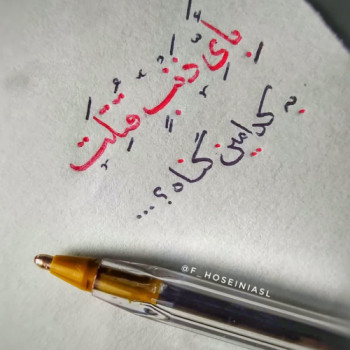 بِأَیِّ ذَنْبٍ قُتِلَتْ
به کدامین گناه؟...
@F_HOSEINIASL